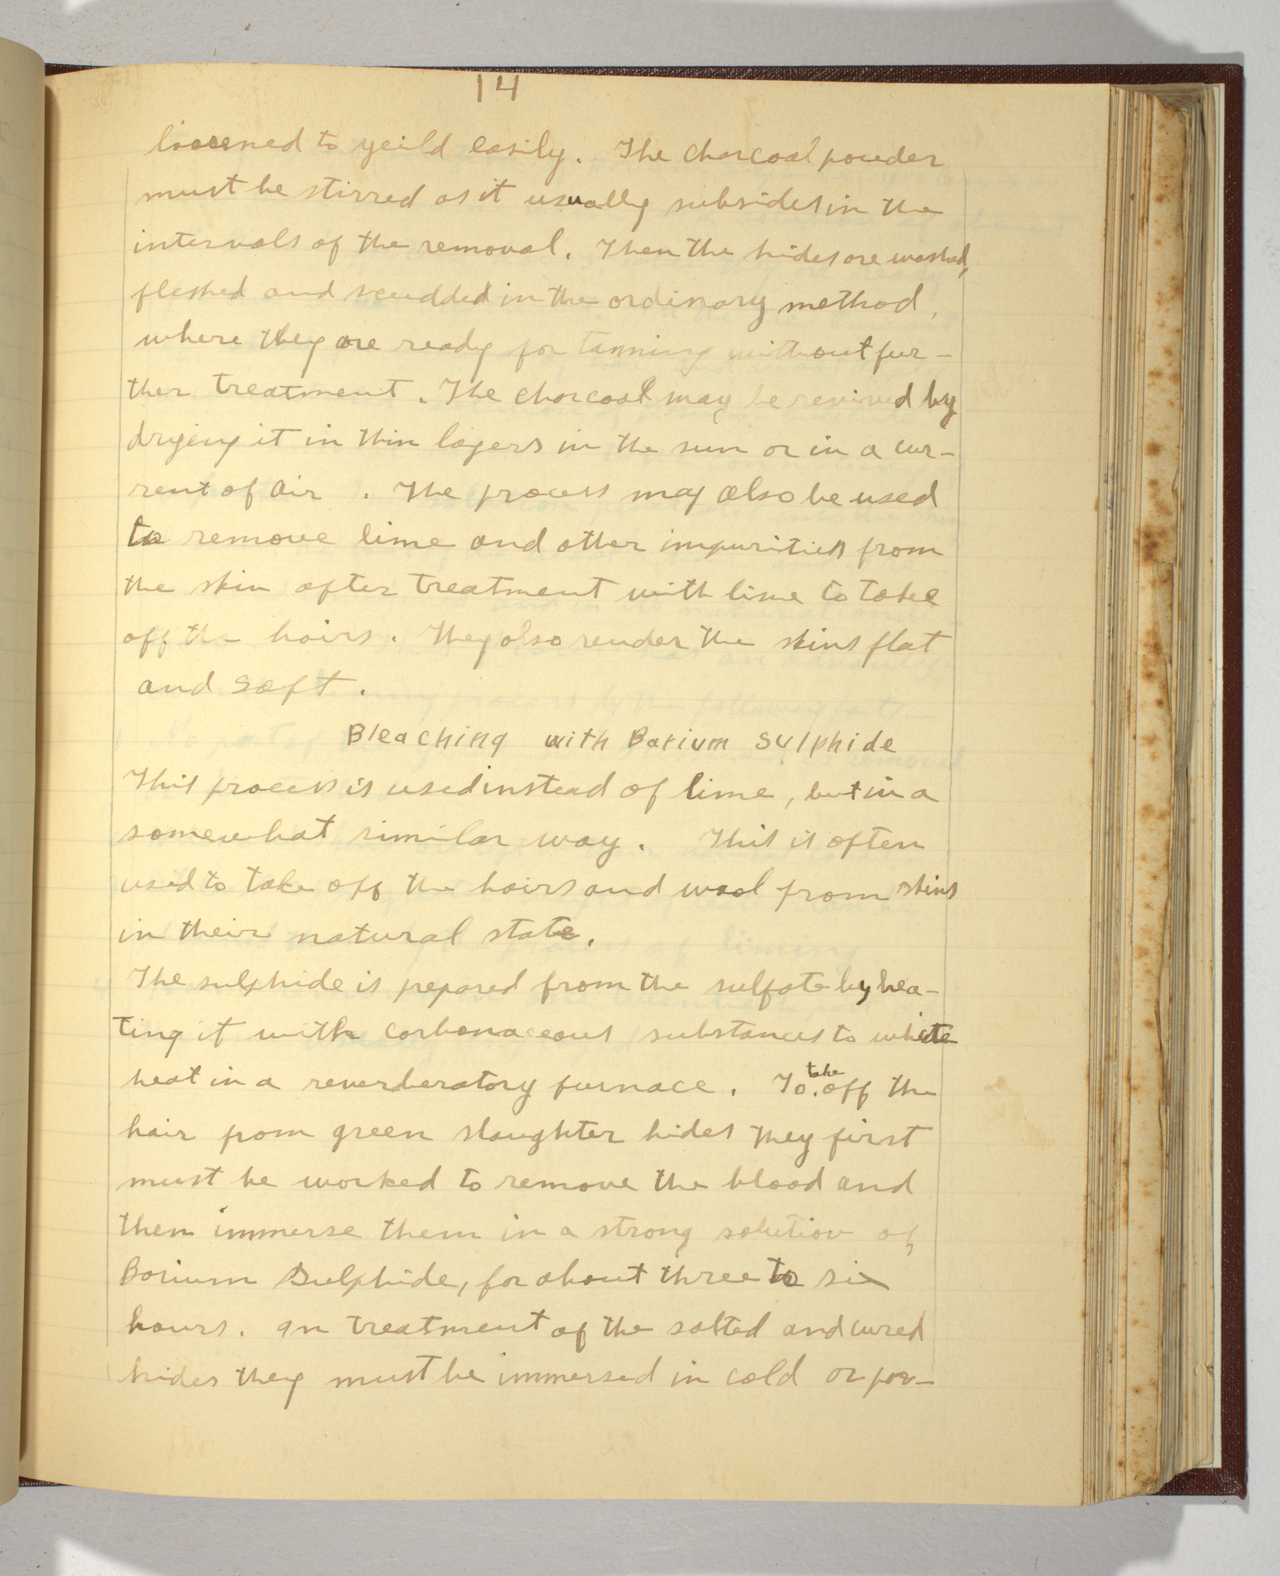 14
loosened to yeild easily. The charcoal powder
must be stirred as it usually subsides in the
intervals of the removal. Then the hides are washed,
fleshed and scudded in the ordinary method,
where they are ready for tanning without fur-
ther treatment. The charcoal may be revived by
drying it in thin layers in the sun or in a cur-
rent of air. The process may also be used
to remove lime and other impurities from
the skin after treatment with lime to take
off the hairs. They also render the skins flat
and soft.
Bleaching with Barium Sulphide
This process is used instead of lime, but in a
somewhat similar way. This is often
used to take off the hairs and wool from skins
in their natural state.
The sulphide is prepared from the sulfate by hea-
ting it with carbonaceous substances to white
heat in a reverberatory furnace. To take off the
hair from green slaughter hides they first
must be worked to remove the blood and
then immerse them in a strong solution of
Barium Sulphide, for about three to six
hours. In treatment of the salted and cured
hides they must be immersed in cold or par-